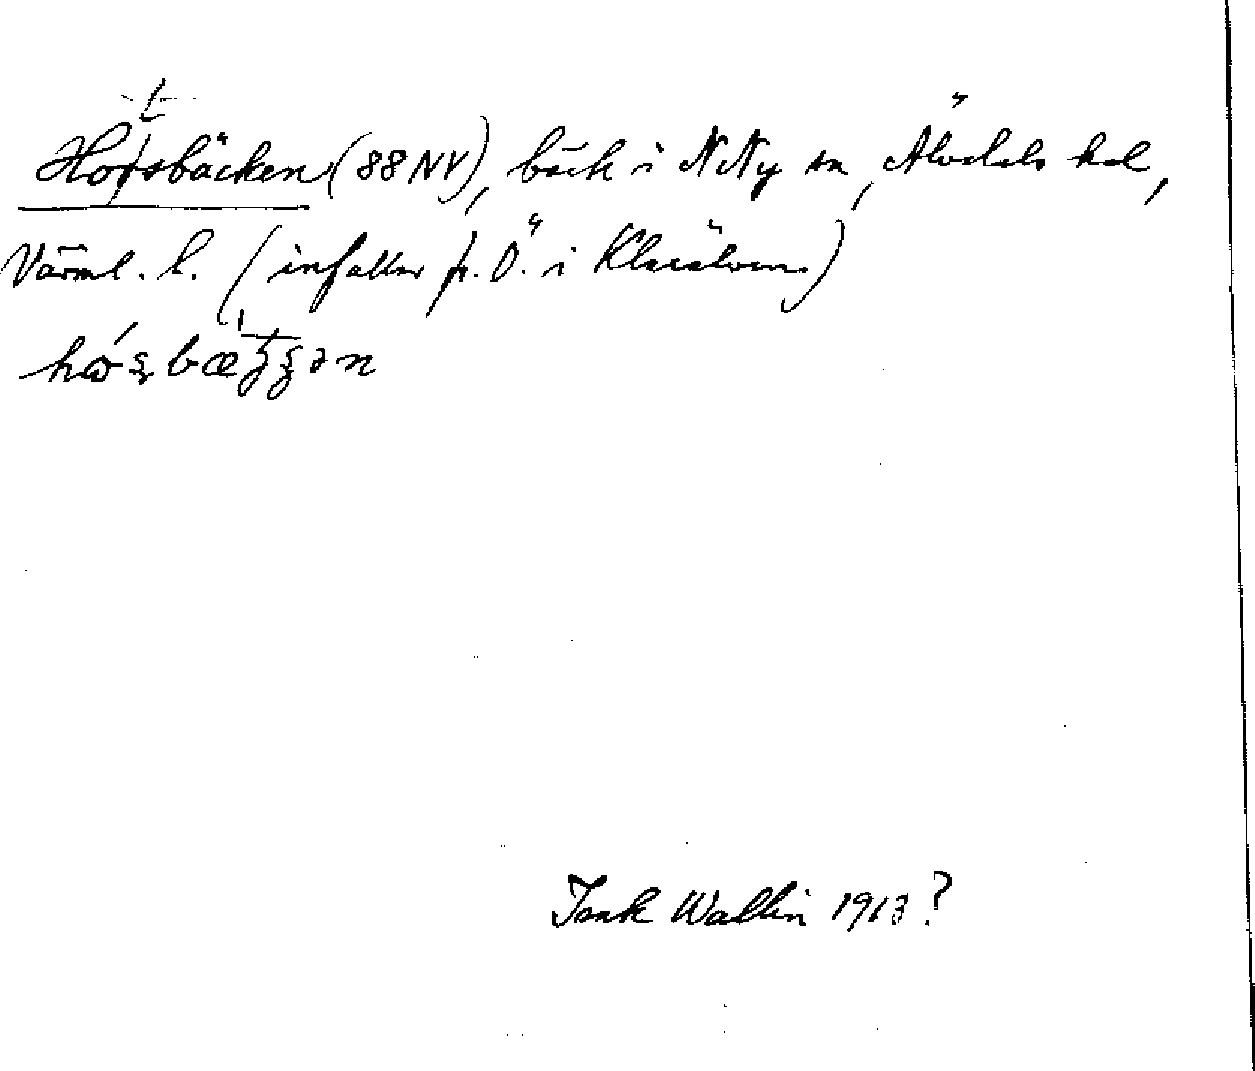 Hötsbäcken (88 NV), bäck i N Ny sn, Älvdals hd,
Värml. l. (infaller fr. Ö. i Klarälven.)
Isak Wallin 1913?